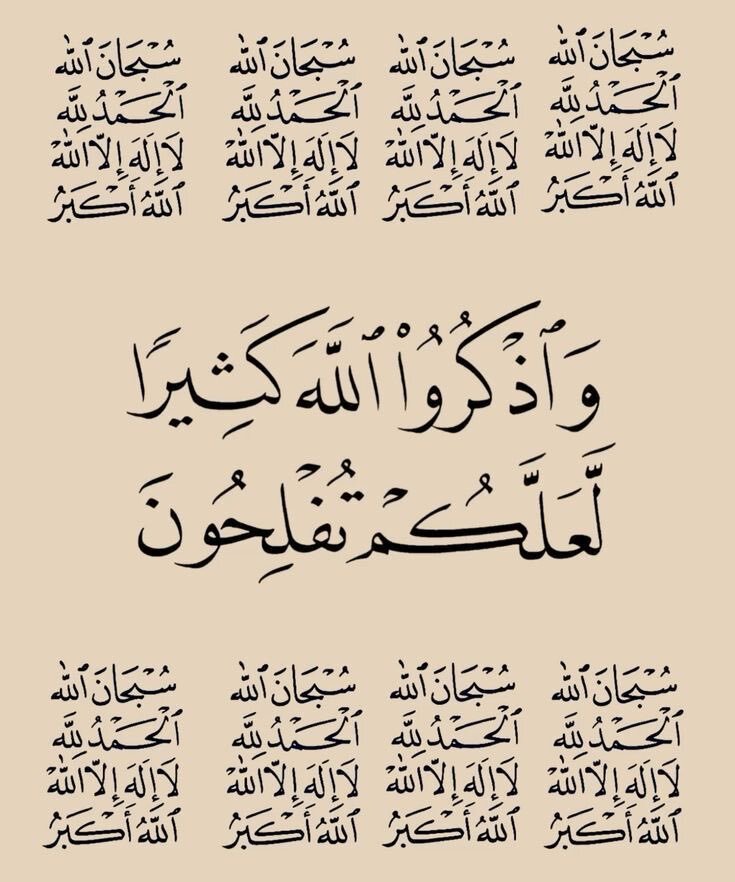 سُبْحَانَ ٱللّٰه
ٱلْحَمْدُ لِلَّه
لَا إِلَهَ إِلَّا ٱللّٰهُ
ٱللّٰهُ أَكْبَرُ
سُبْحَانَ ٱللّٰه
ٱلْحَمْدُ لِلَّه
لَا إِلَهَ إِلَّا ٱللّٰهُ
ٱللّٰهُ أَكْبَرُ
سُبْحَانَ ٱللّٰه
ٱلْحَمْدُ لِلَّه
لَا إِلَهَ إِلَّا ٱللّٰهُ
ٱللّٰهُ أَكْبَرُ
سُبْحَانَ ٱللّٰه
ٱلْحَمْدُ لِلَّه
لَا إِلَهَ إِلَّا ٱللّٰهُ
ٱللّٰهُ أَكْبَرُ
وَٱذْكُرُوْا ٱللَّهَ كَثِيرًا
لَّعَلَّكُمْ تُفْلِحُونَ
سُبْحَانَ ٱللّٰه
ٱلْحَمْدُ لِلَّه
لَا إِلَهَ إِلَّا ٱللّٰهُ
ٱللّٰهُ أَكْبَرُ
سُبْحَانَ ٱللّٰه
ٱلْحَمْدُ لِلَّه
لَا إِلَهَ إِلَّا ٱللّٰهُ
ٱللّٰهُ أَكْبَرُ
سُبْحَانَ ٱللّٰه
ٱلْحَمْدُ لِلَّه
لَا إِلَهَ إِلَّا ٱللّٰهُ
ٱللّٰهُ أَكْبَرُ
سُبْحَانَ ٱللّٰه
ٱلْحَمْدُ لِلَّه
لَا إِلَهَ إِلَّا ٱللّٰهُ
ٱللّٰهُ أَكْبَرُ